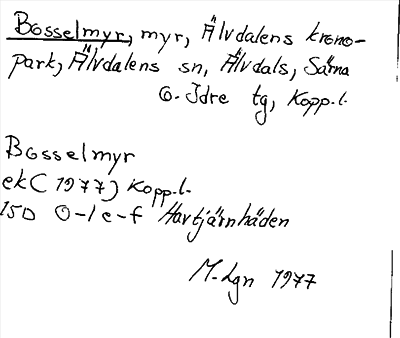 Bosselmyr, myr, Älvdalens krono-
park, Älvdalens sn, Älvdals, Särna
o. Idre tg, Kopp.l.
Bosselmyr
ek (1977) Kopp.l.
15D 0-1 e-f Hartjärnhäden
M-Lgn 1977